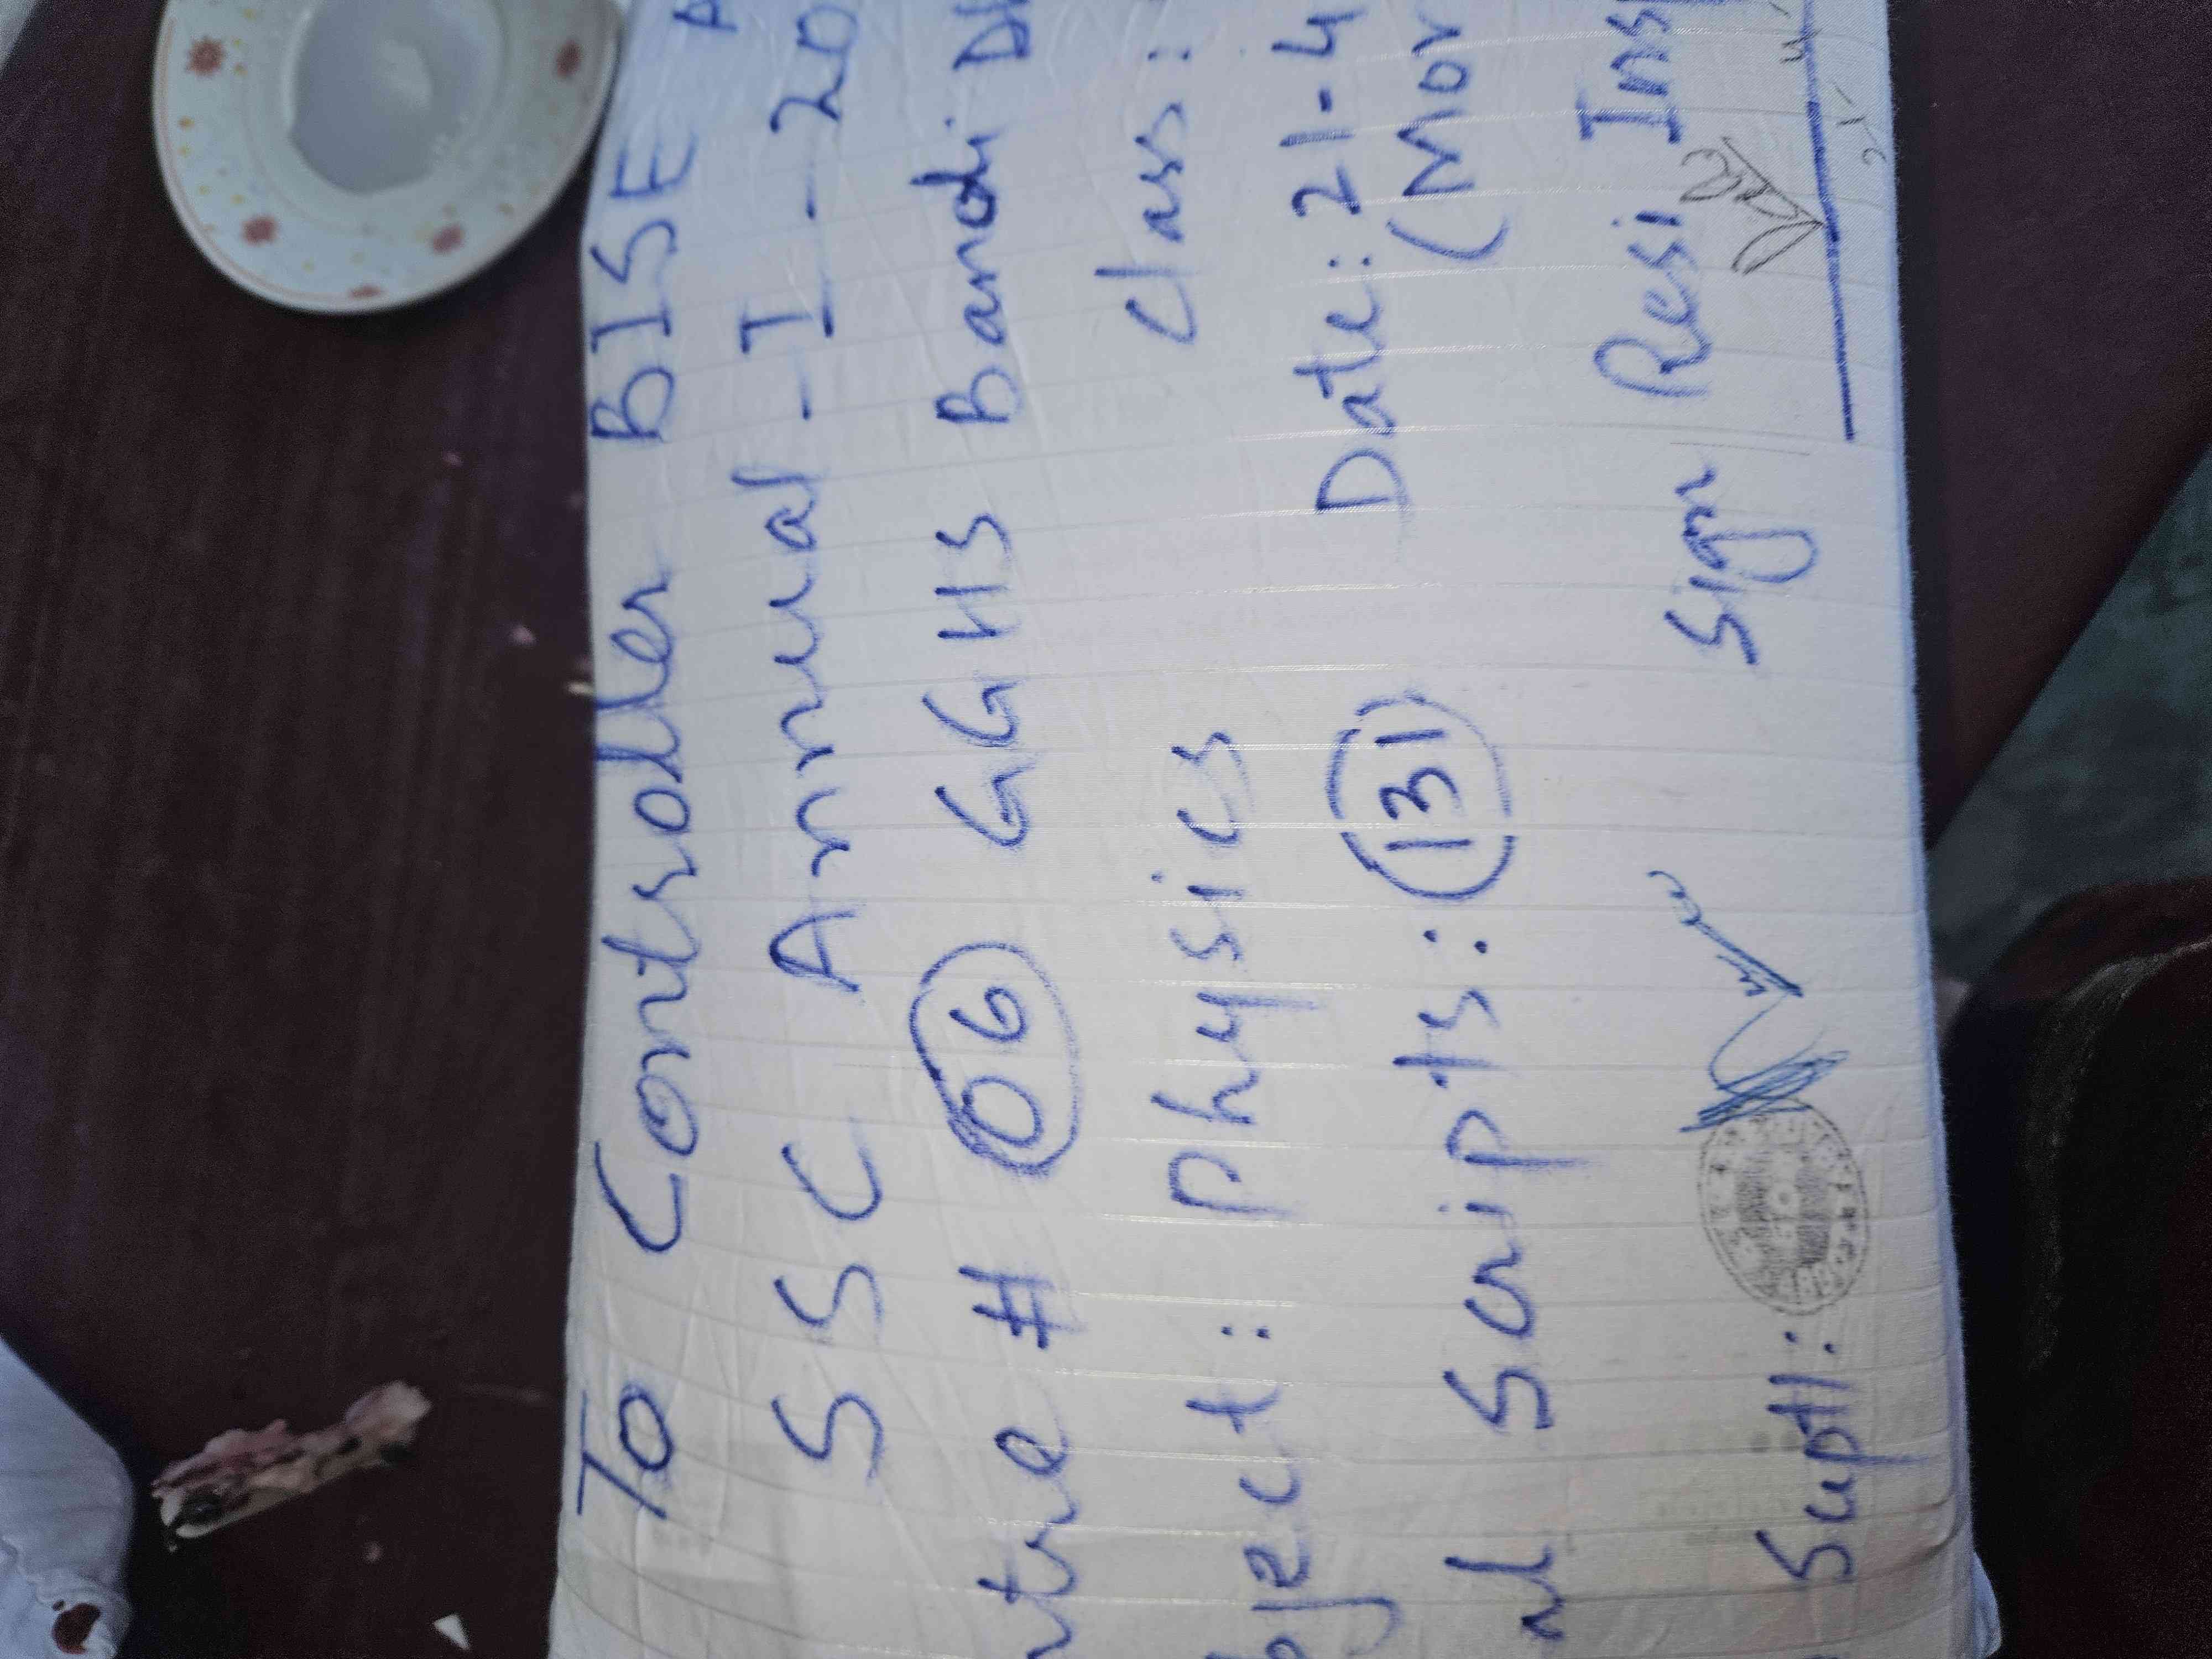 To Controller BISE A
SSC Annual-I-20
ntre # 06 GGHS Bandi Dh
bject: Physics Class:
al Scripts: 131 Date: 21-4
(Mor
Suptt: Sign Resi Ins
21-4-